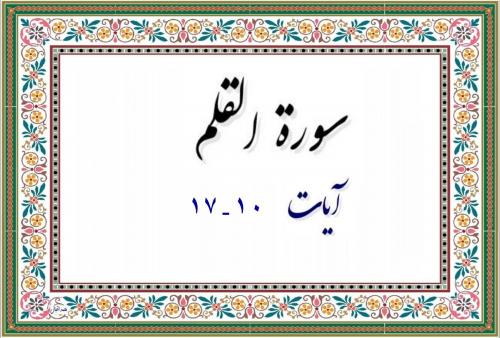 سورة القلم
آيات ١٠ - ١٧